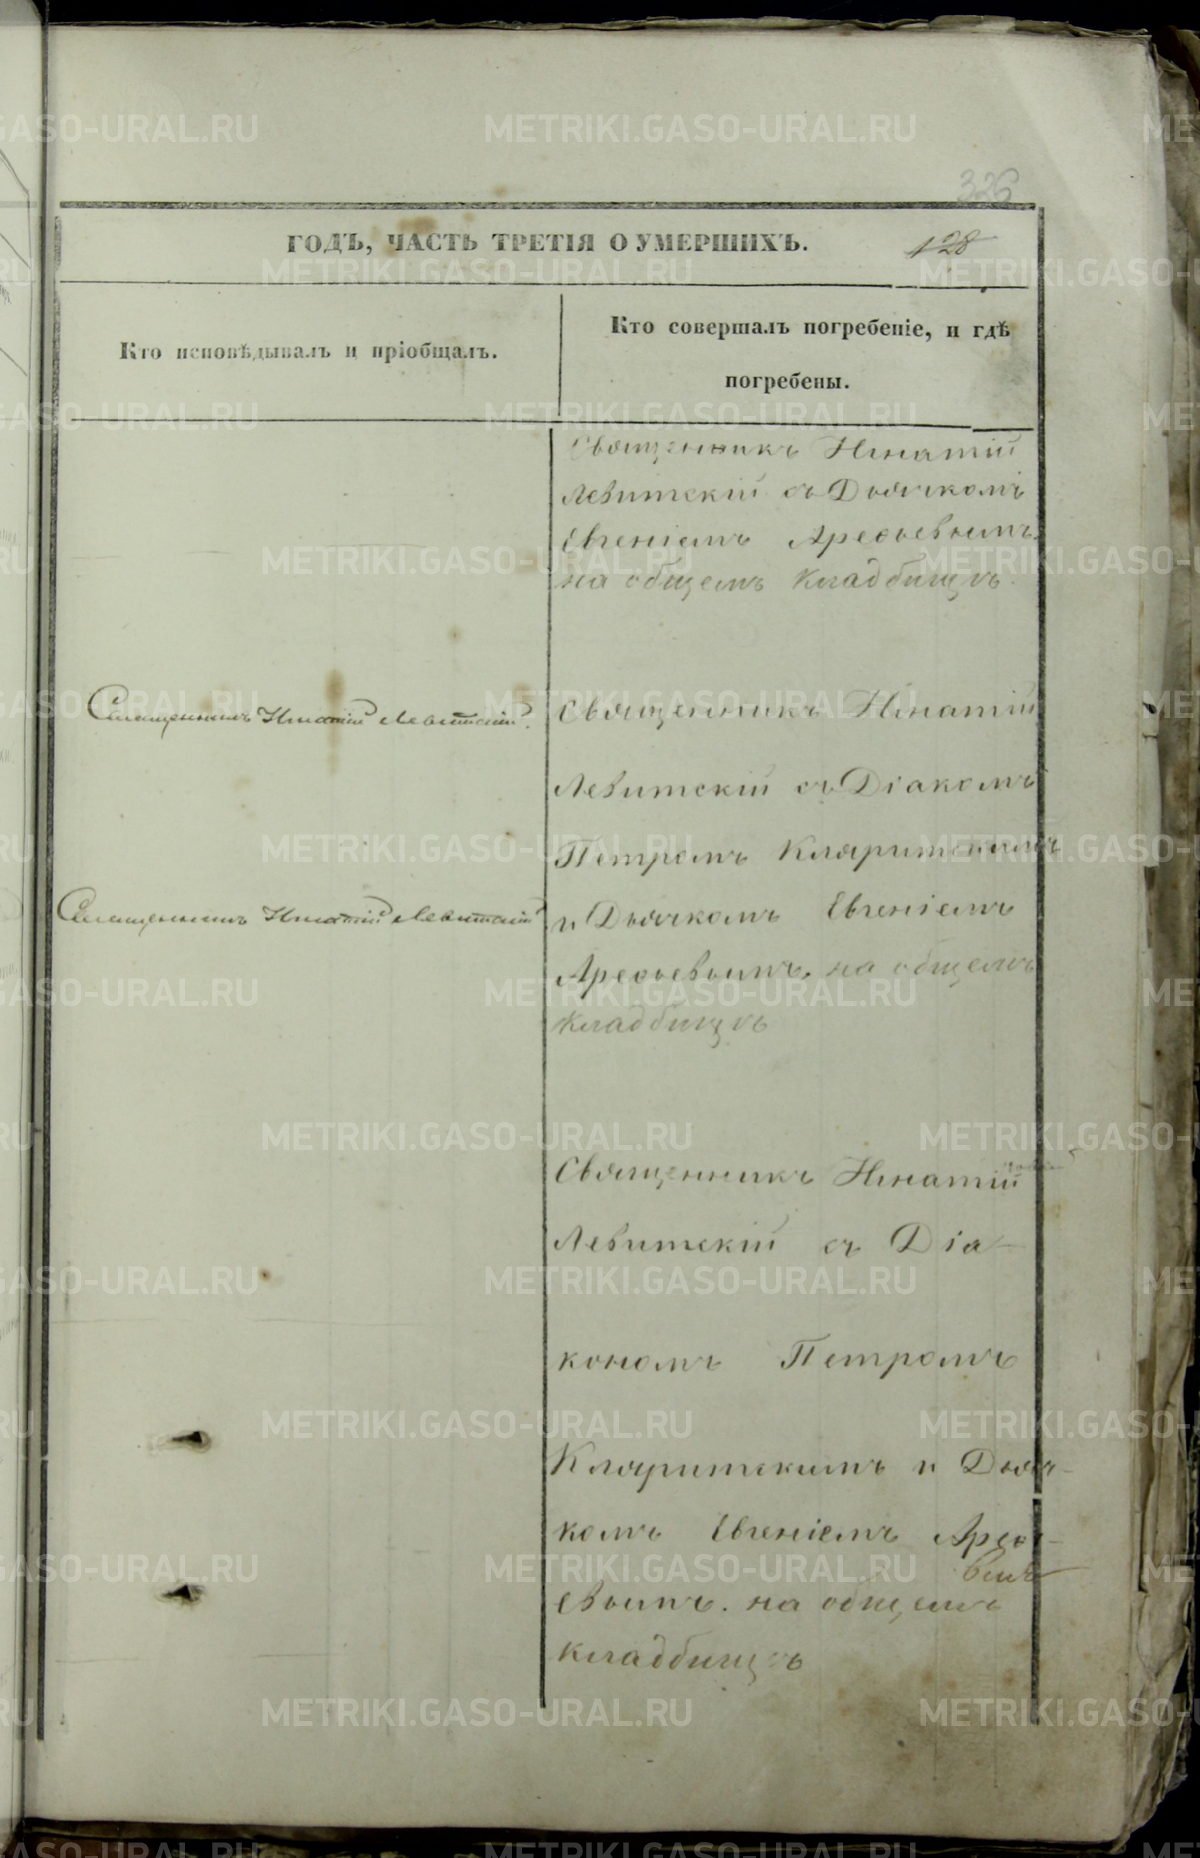 326
ГОДЪ, ЧАСТЬ ТРЕТІЯ О УМЕРШИХЪ.
128
Кто исповѣдывалъ и пріобщалъ.
Кто совершалъ погребеніе, и гдѣ
погребены.
Священникъ Игнатій
Левитскій съ Дьячкомъ
Евгеніемъ Арефьевымъ.
на общемъ кладбищѣ.
Священникъ Игнатій Левитскій.
Священникъ Игнатій
Левитскій съ Діакомъ
Петромъ Кляритскимъ
Священникъ Игнатій Левитскій
и Дьячкомъ Евгеніемъ
Арефьевымъ. на общемъ
кладбищѣ
Священникъ Игнатій
Левитскій съ Діа-
кономъ Петромъ
Кляритскимъ и Дьяч-
комъ Евгеніемъ Арефь-
евымъ. на общемъ
кладбищѣ
METRIKI.GASO-URAL.RU